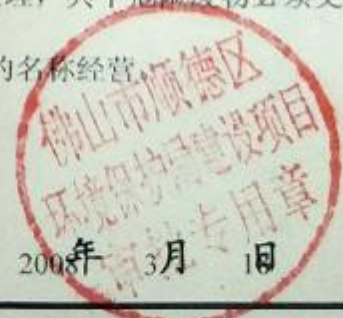 的名称经营。
佛山市顺德区
环境保护局建设项目
审批专用章
2008年 3月 18日